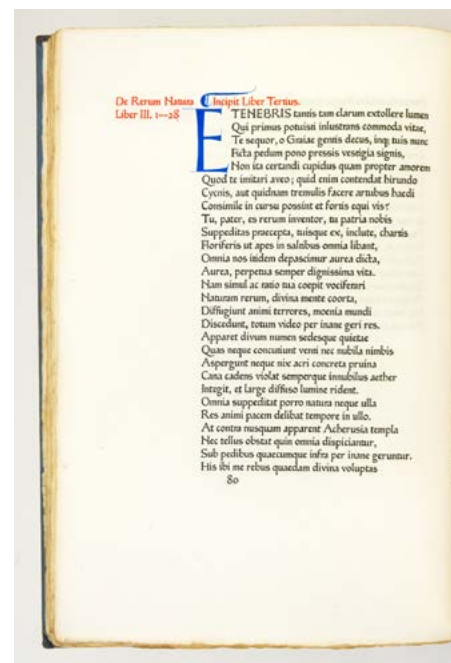 De Rerum Natura
Liber III. 1—28
Incipit Liber Tertius.
E TENEBRIS tantis tam clarum extollere lumen
Qui primus potuisti inlustrans commoda vitae,
Te sequor, o Graiae gentis decus, inq; tuis nunc
Ficta pedum pono pressis vestigia signis,
Non ita certandi cupidus quam propter amorem
Quod te imitari aveo; quid enim contendat hirundo
Cycnis, aut quidnam tremulis facere artubus haedi
Consimile in cursu possint et fortis equi vis?
Tu, pater, es rerum inventor, tu patria nobis
Suppeditas praecepta, tuisque ex, inclute, chartis
Floriferis ut apes in saltibus omnia libant,
Omnia nos itidem depascimur aurea dicta,
Aurea, perpetua semper dignissima vita.
Nam simul ac ratio tua coepit vociferari
Naturam rerum, divina mente coorta,
Diffugiunt animi terrores, moenia mundi
Discedunt, totum video per inane geri res.
Apparet divum numen sedesque quietae
Quas neque concutiunt venti nec nubila nimbis
Aspergunt neque nix acri concreta pruina
Cana cadens violat semperque innubilus aether
Integit, et large diffuso lumine rident.
Omnia suppeditat porro natura neque ulla
Res animi pacem delibat tempore in ullo.
At contra nusquam apparent Acherusia templa
Nec tellus obstat quin omnia dispiciantur,
Sub pedibus quaecumque infra per inane geruntur.
His ibi me rebus quaedam divina voluptas
80